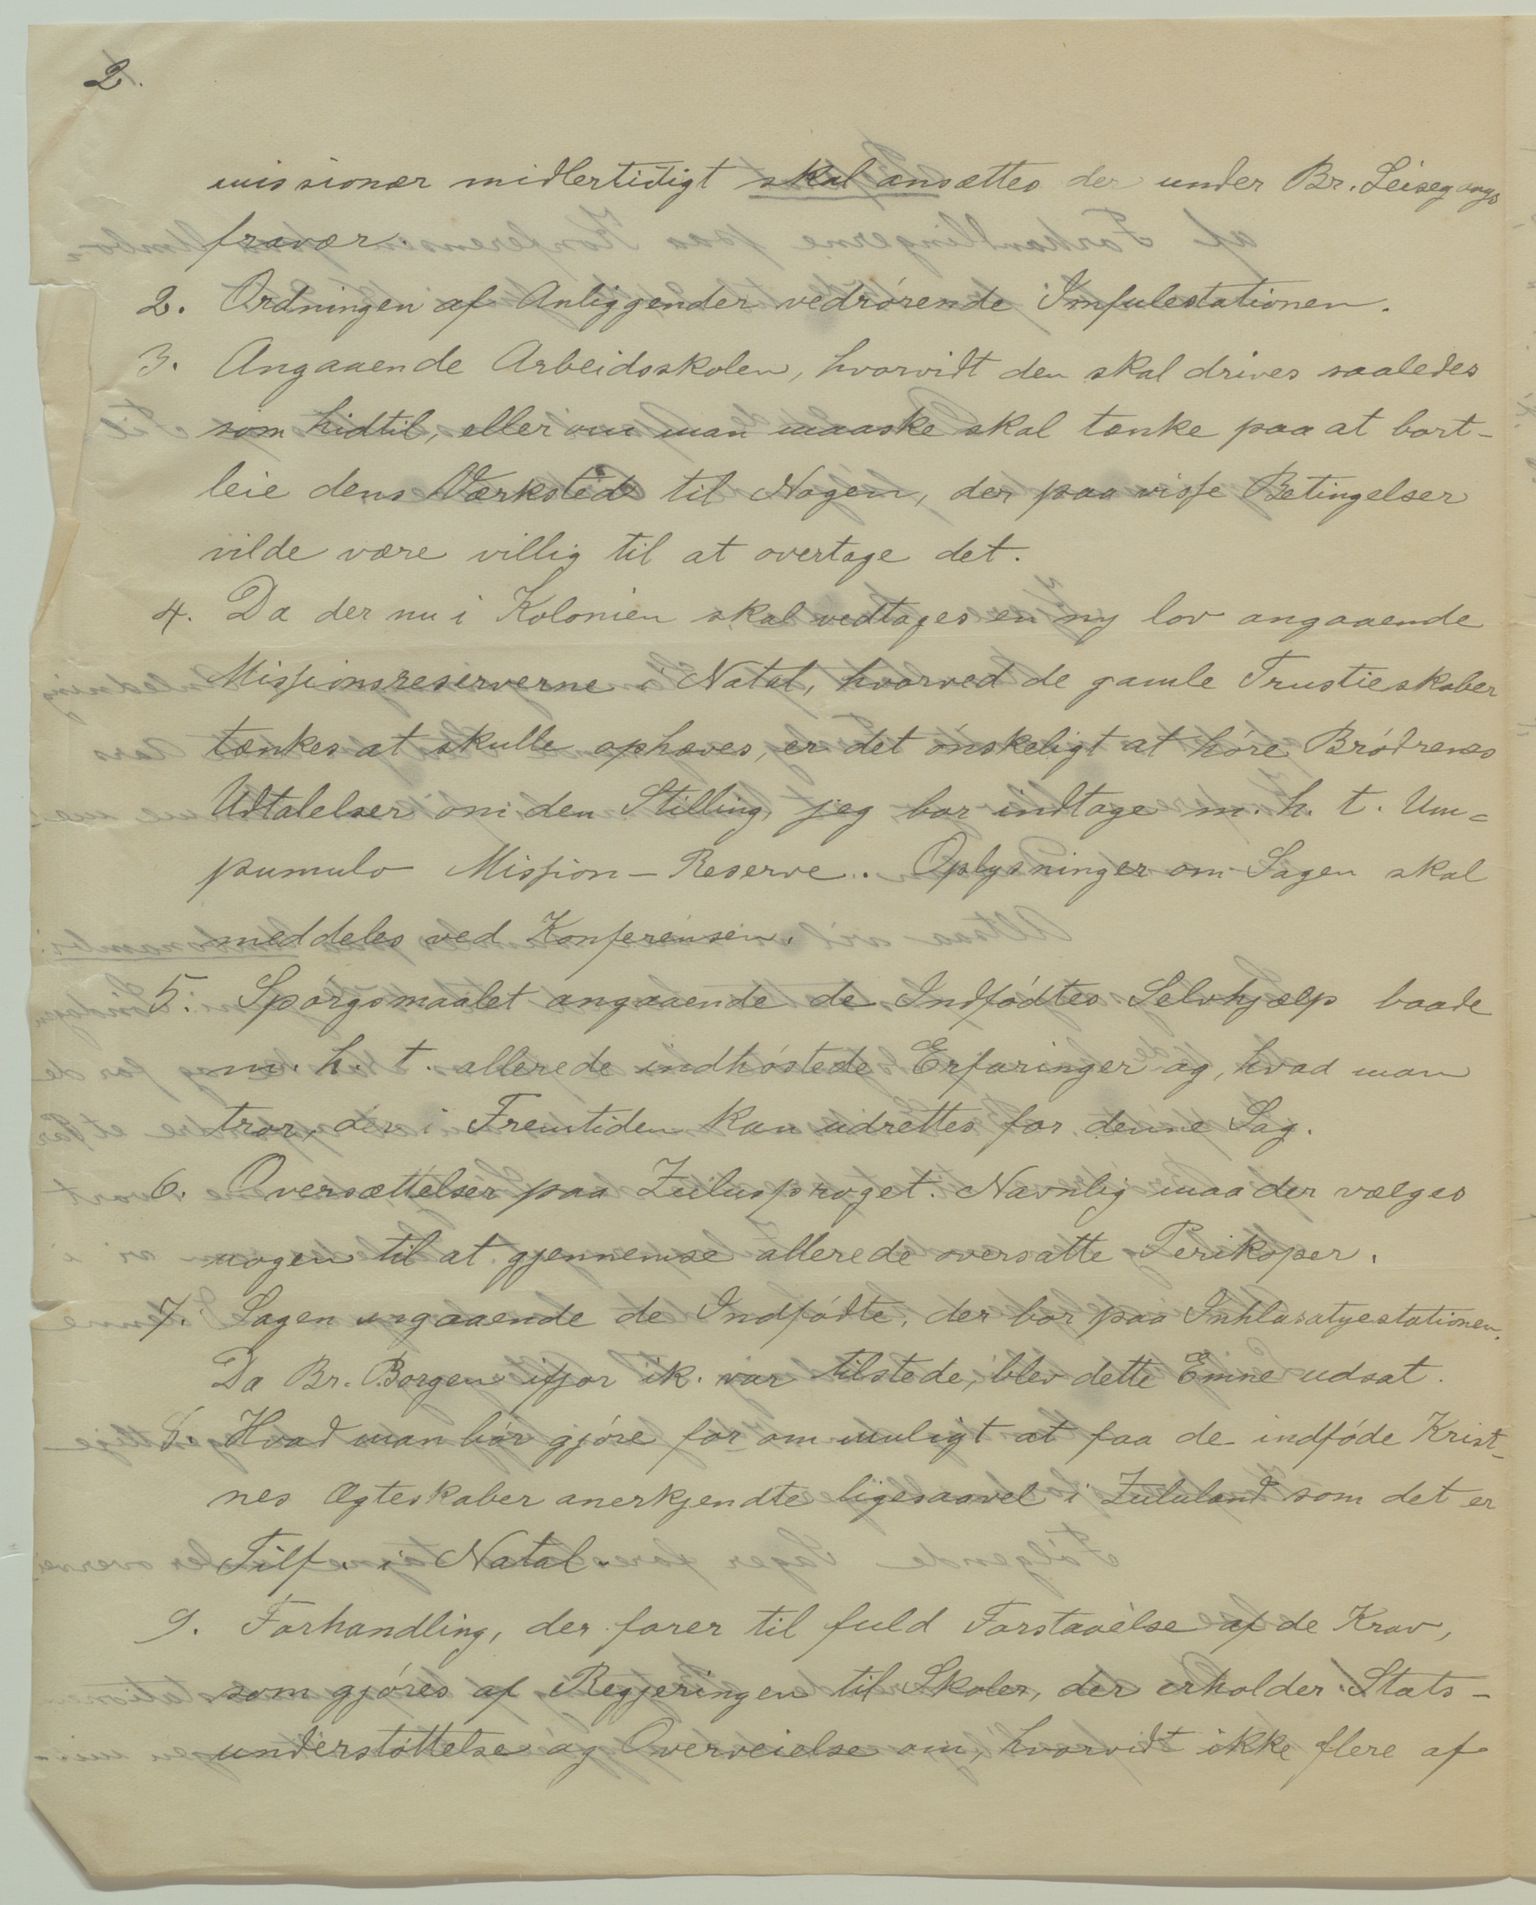 2.
missionær midlertidigt skal ansættes der under Br. Leisegangs
fravær.
2. Ordningen af Anliggender vedrørende Imfulestationen.
3. Angaaende Arbeidsskolen, hvorvidt den skal drives saaledes
som hidtil, eller om man maaske skal tænke paa at bort-
leie dens Værksted til Nogen, der paa visse Betingelser
vilde være villig til at overtage det.
4. Da der nu i Kolonien skal vedtages en ny lov angaaende
Missionsreserverne i Natal, hvorved de gamle Trustieskaber
tænkes at skulle ophæves, er det ønskeligt at høre Brødrenes
Udtalelser om den Stilling, jeg bør indtage m. h. t. Um=
pumulo Mission-Reserve. Oplysninger om Sagen skal
meddeles ved Konferensen.
5. Spørgsmaalet angaaende de Indfødtes Selvhjælp baade
m. h. t. allerede indhøstede Erfaringer og, hvad man
tror, der i Fremtiden kan udrettes for denne Sag.
6. Oversættelser paa Zulusproget. Navnlig maa der vælges
nogen til at gjennemse allerede oversatte Perikoper.
7. Sagen angaaende de Indfødte, der bor paa Inhlasatyestationen.
Da Br. Borgen ifjor ik. var tilstede, blev dette Emne udsat.
8. Hvad man bør gjøre for om muligt at faa de indføde Krist-
nes Ægteskaber anerkjendte ligesaavel i Zululand som det er
Tilf. i Natal.
9. Forhandling, der fører til fuld Forstaaelse af de Krav,
som gjøres af Regjeringen til Skoler, der erholder Stats-
understøttelse og Overveielse om, hvorvidt ikke flere af